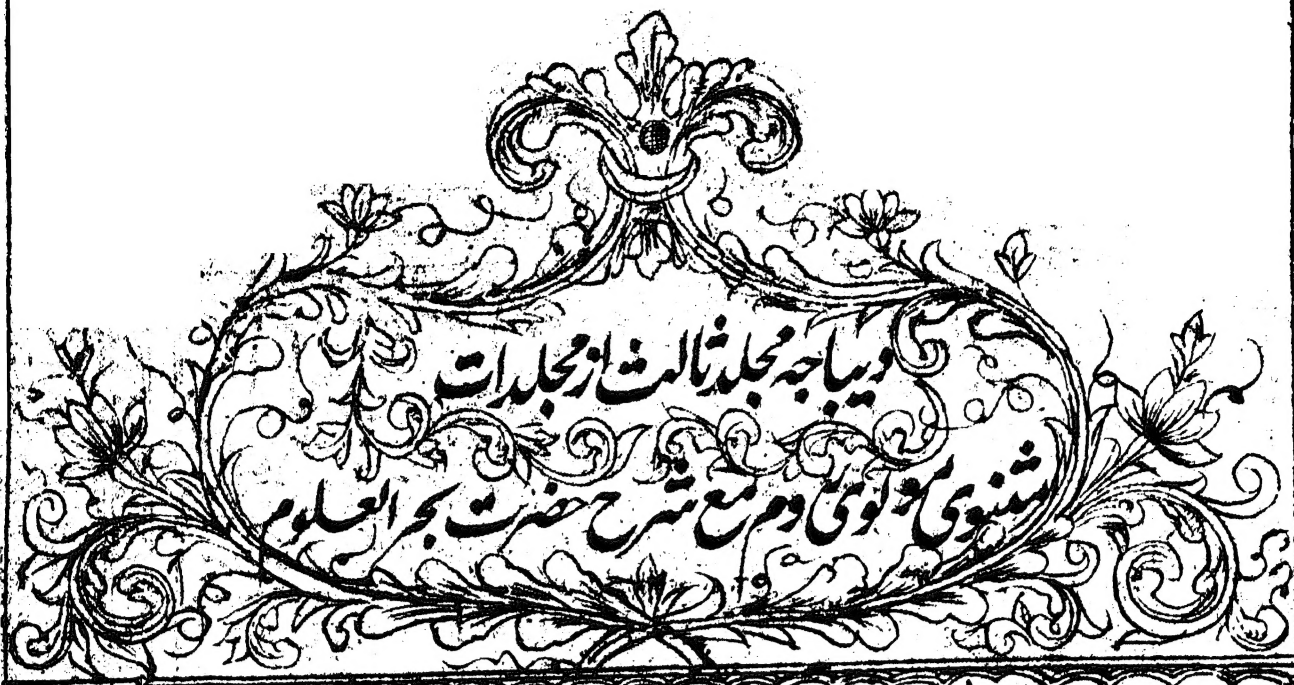 دیباجه مجلد ثالث از مجلدات
مثنوی مولوی روم مع شرح حضرت بحر العلوم